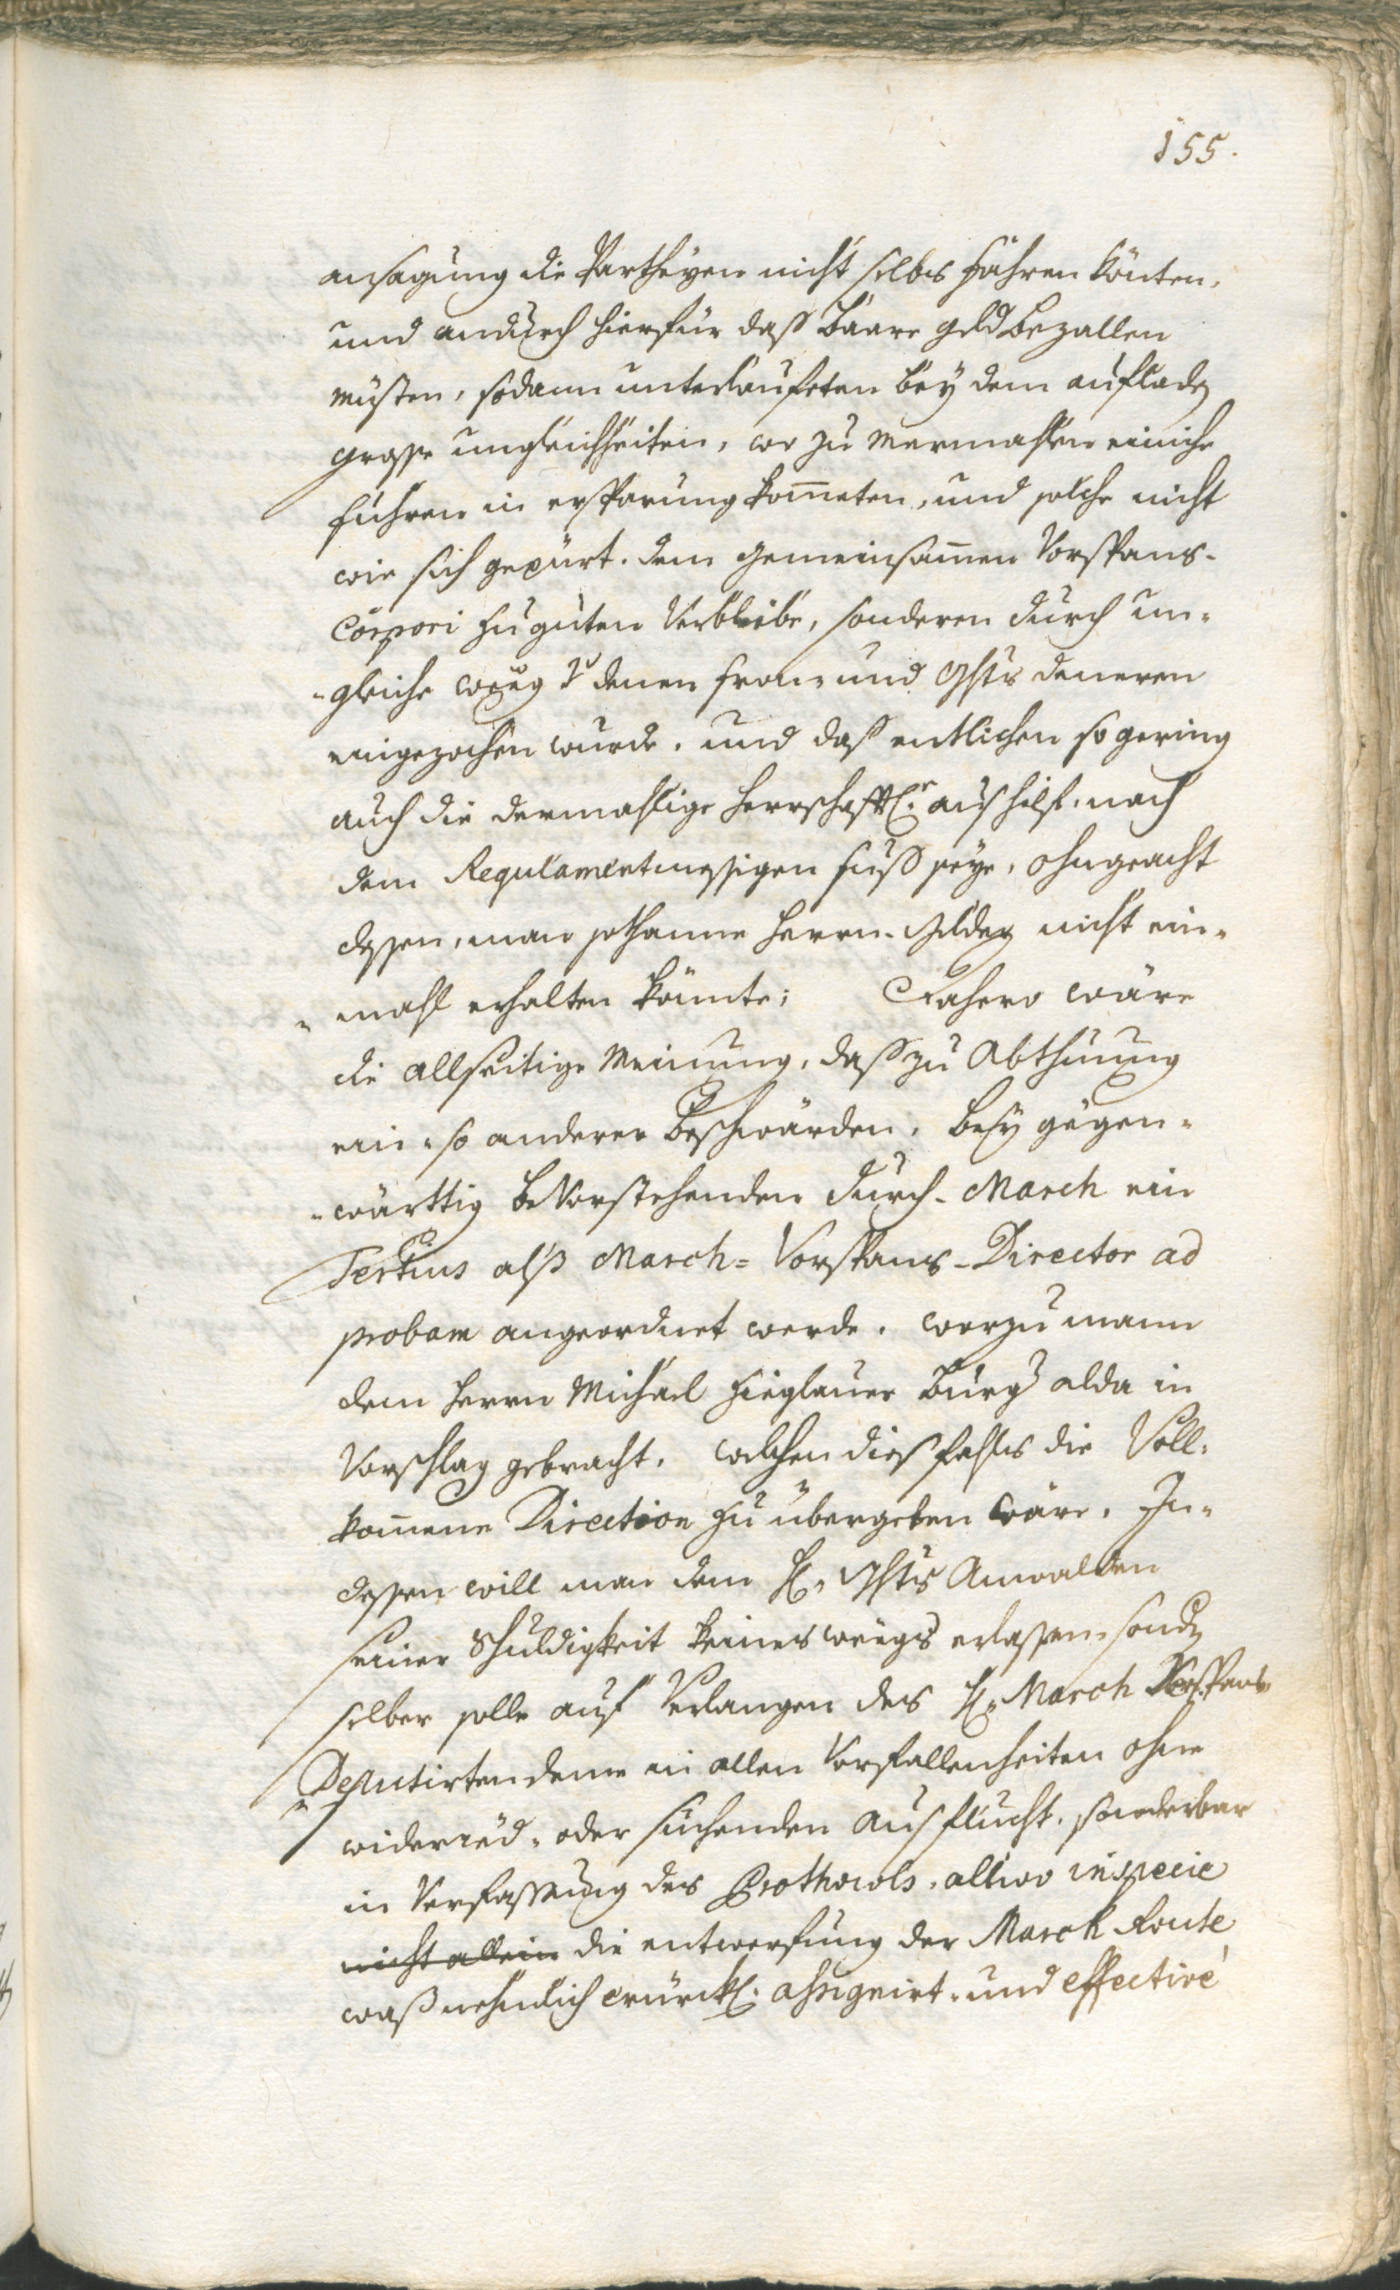 155.
ansagung die Partheyen nicht selbs fahren könten,
und andurch hierfür daß baare geld bezallen
müsten, sodann unterlaufeten bey dem aufladen
grosse ungleichheiten, wo zu mermahlen einiche
fuhren in ersparung kom̄eten, und solche nicht
wie sich gepürt. dem gemeinsam̄en Vorspans-
Corpori zu guten Verbleibe, sonderen durch un-
-gleiche weeg denen fron- und Ghts deneren
eingezochen wurde. und daß entlichen so gering
auch die dermahlige herrschaftl. aushilf, nach
dem Regulamentmessigen fuß seye, ohngeacht
dessen, man sothanne herrn-gelder nicht ein-
-mahl erhalten könnte; Dahero wäre
die allseitige Meinung, daß zu Abthuung
ein- so anderer beschwärden, bey gegen-
-wärttig beVorstehenden durch-March ein
Tertius alß March-Vorspans-Director ad
probam angeordnet werde. worzu mann
dem herrn Michael Hieglauer burg. alda in
Vorschlag gebracht, welchen diesfahls die Voll-
kom̄ene Direction zu übergeben wäre. In-
dessen will man dem H. Ghts Anwalden
seiner Schuldigkeit keinesweegs erlassen, sondern
selber solle auf Verlangen des H. March Vorspans-
Deputirten denne in allen Vorfallenheiten ohne
widerred- oder suchenden Ausflucht, sonderbar
in Verfassung des Prothocols, allwo in specie
nicht allein die entwerfung der March Route
waß nehmlich würckl. assignirt- und effective